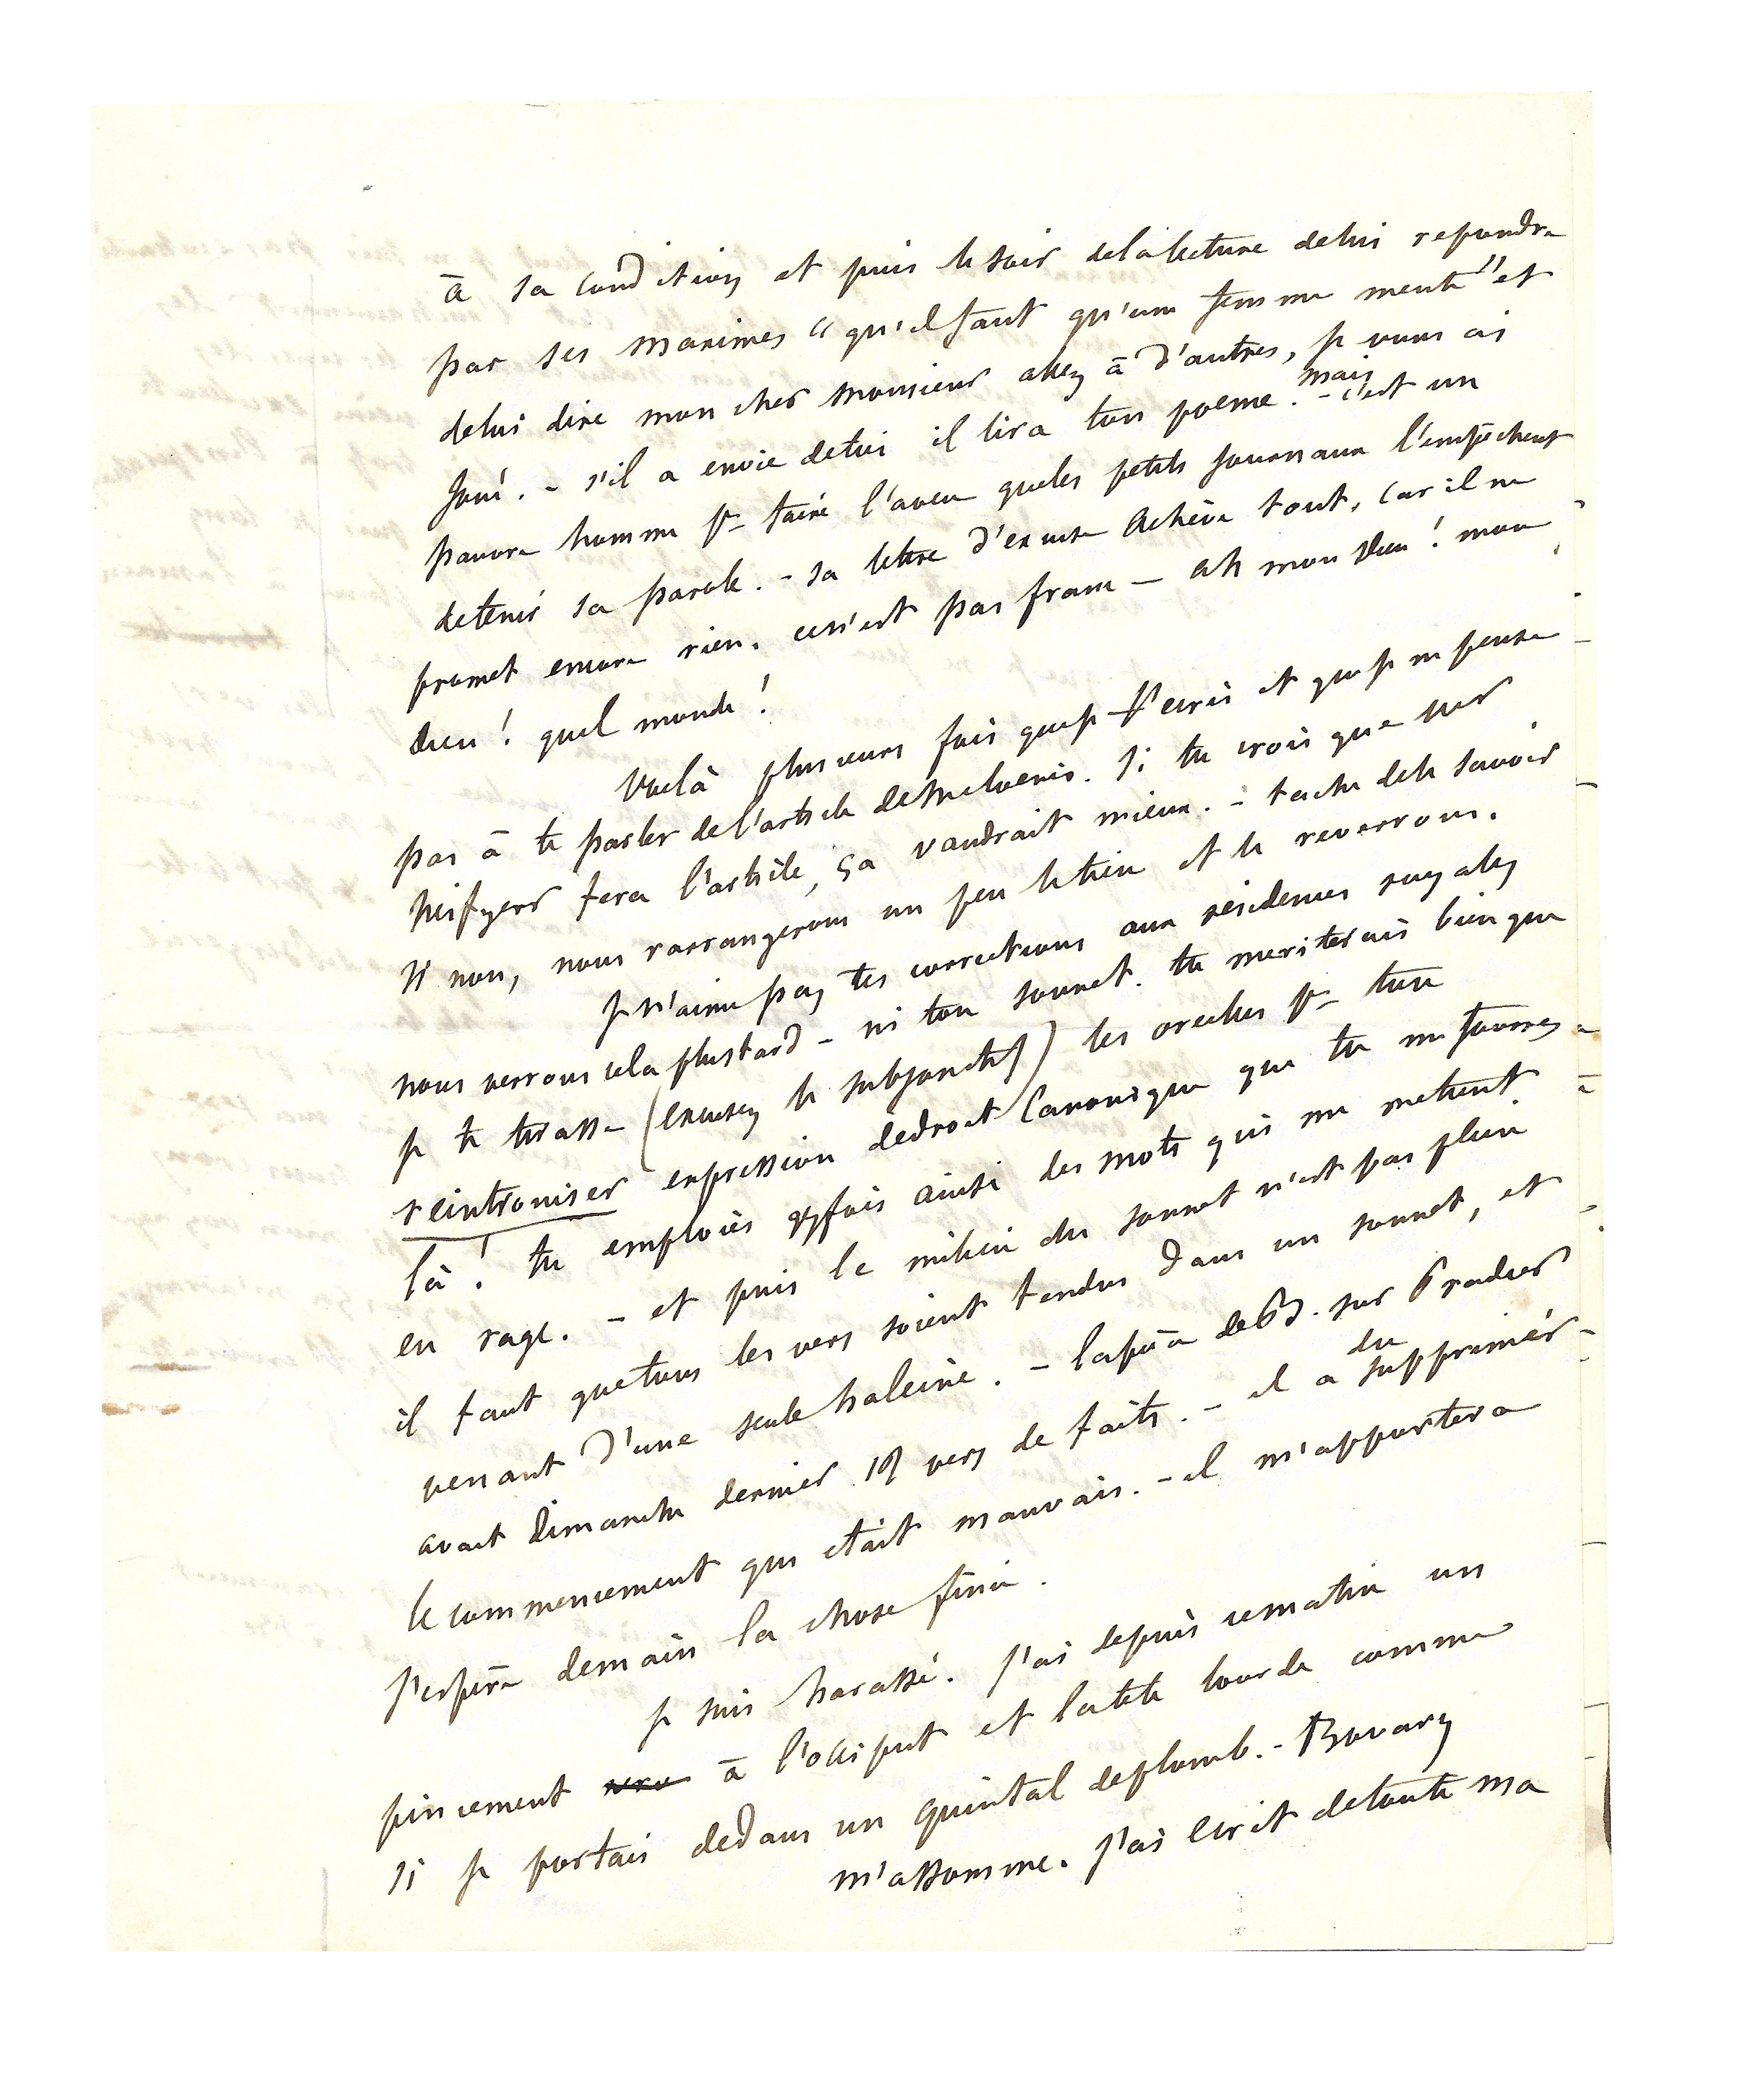 à sa condition et puis le soir delalecture delui repondre
par ses maximes "qu'il faut qu'une femme mente" et
delui dire mon cher monsieur allez à d'autres, je vous ai
joué. - s'il a envie detoi il lira ton poeme. - mais c'est un
pauvre homme pr faire l'aveu queles petits journaux l'empêchent
detenir sa parole. - sa lettre d'excuse achève tout, car il ne
promet encore rien. cen'est pas franc - ah mon Dieu! mon
Dieu! quel monde!
Voilà plusieurs fois queje t'ecris et queje ne pense
pas à te parler del'article de Melaenis. Si tu crois que
fera l'article, ça vaudrait mieux. - tache dele savoir
si non, nous rarrangerons un peu letien et le reverrons.
je n'aime pas tes corrections aux résidences royales
nous verrons cela plustard - ni ton sonnet. tu meriterais bien que
je te tirasse (excusez le subjonctif) les oreilles pr ton
réintroniser expression dedroit canonique que tu me fourres
là! tu emploies qqfois ainsi des mots qui me mettent
en rage. - et puis le milieu du sonnet n'est pas plein
il faut quetous les vers soient tendus dans un sonnet, et
venant d'une seule haleine. - lapièce deB. sur Pradier
avait Dimanche dernier 19 vers de faits. - il a du supprimer
le commencement qui était mauvais. - il m'apportera
j'espère demain la chose finie.
je suis harassé. J'ai depuis cematin un
pincement à l'occiput et latête lourde comme
si je portais dedans un quintal deplomb. - Bovary
m'assomme. J'ai ecrit detoute ma